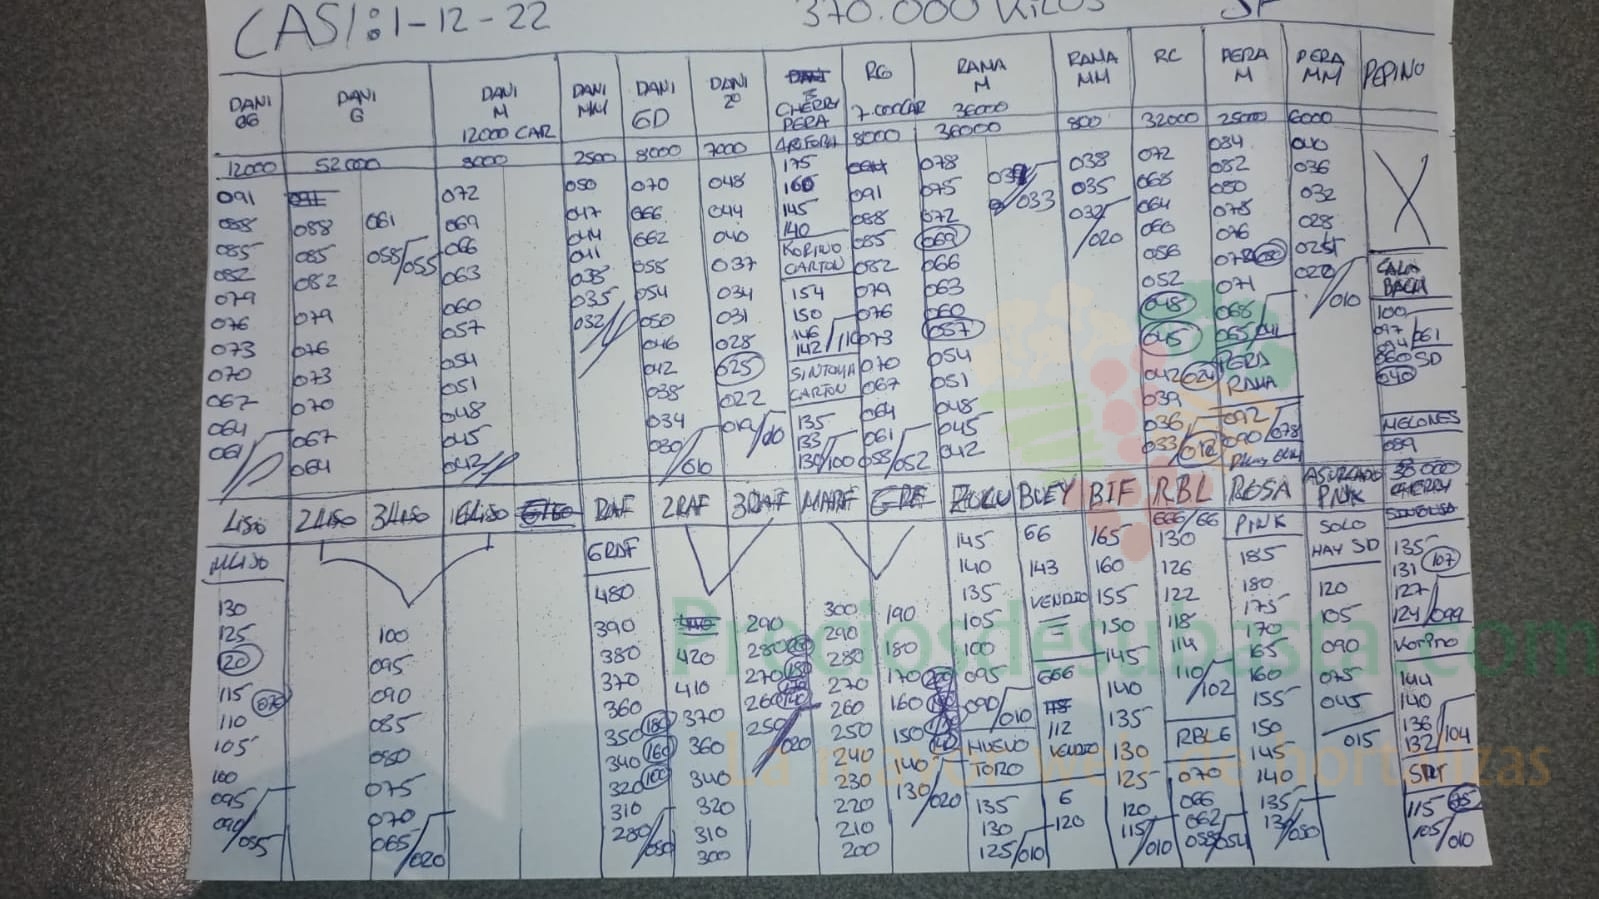 CASI: 1-12-22 370.000 KILOS
DANI GG DANI G DANI M DANI MM DANI GD DANI 2ª CHERRY PERA RG RAMA M RAMA MM RC PERA M PERA MM PEPINO
12000 CAR 7.000CAR 36000
12000 52000 8000 2500 8000 7000 8000 36000 800 32000 25000 6000
091
088
085
082
079
076
073
070
067
064
061
088 061
085 058/055
082
079
076
073
070
067
064
072
069
066
063
060
057
054
051
048
045
042
050
047
044
041
038
035
032
070
066
062
058
054
050
046
042
038
034
030/010
048
044
040
037
034
031
028
025
022
019/010
175
160
145
140
KORINO
CARTON
154
150
146
142/110
SINTONIA
CARTON
135
133
130/100
091
088
085
082
079
076
073
070
067
064
061
058/052
078
075 033
072
069
066
063
060
057
054
051
048
045
042
038
035
032/020
072
068
064
060
056
052
048
045
042 024
039
036
033/012
084
082
080
078
076
074
071
068
065/041
PERA
RAMA
092
090/078
040
036
032
028
025
020/010
CALA
BACIN
100
097
094/061
060 SD
040
MELONES
089
CHERRY
LISO 2LISO 3LISO 16LISO RAF 2RAF 3RAF MARF GRF ZULU BUEY BIF RBL ROSA ASURCADO PINK
MLISO
130
125
120
115 070
110
105
100
095
090/055
100
095
090
085
080
075
070
065/020
GRAF
480
390
380
370
360
350 180
340 160
320 100
310
280/050
420
410
370
360
340
320
310
300
290
280
270
260
250/020
300
290
280
270
260
250
240
230
220
210
200
190
180
170
160
150
140
130/020
145
140
135
105
100
095
090/010
NUEVO
TORO
135
130
125/010
66
143
VENDIO
666
112
VENDIO
6
120
165
160
155
150
145
140
135
130
125
120
115/010
666/66
130
126
122
118
114
110/102
RBLG
070
066
062
058/054
PINK
185
180
175
170
165
160
155
150
145
140
135
130/050
SOLO
HAY SD
120
105
090
075
045
015
135
131 107
127
124/099
KORINO
144
140
136
132/104
115
105/010
Preciosdesubasta.com
La mayor web de hortalizas